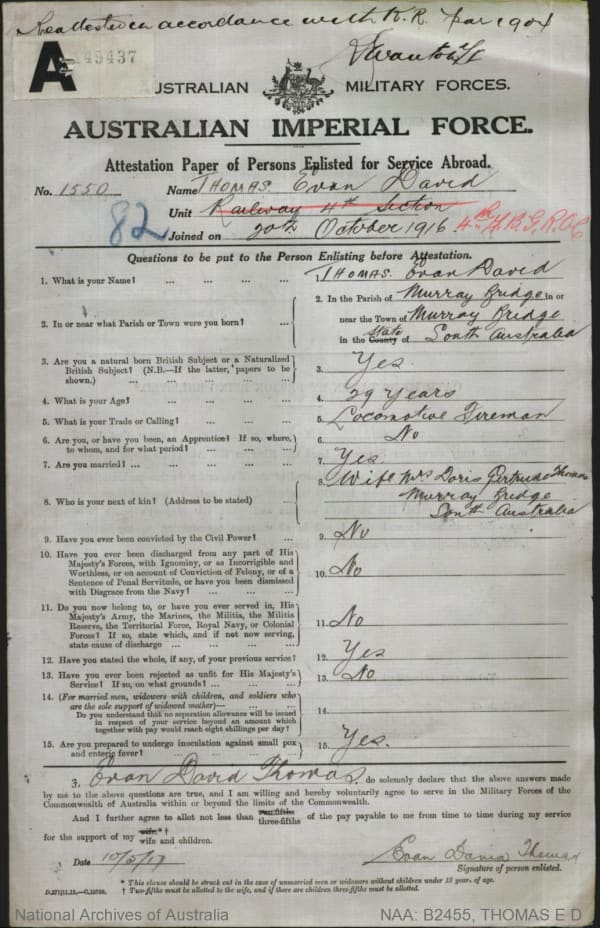 Reattested in accordance with K. R. Par 1904
A
149437
AUSTRALIAN MILITARY FORCES.
AUSTRALIAN IMPERIAL FORCE.
Attestation Paper of Persons Enlisted for Service Abroad.
No. 1550 Name THOMAS. Evan David
82 Unit Railway 4th Section
Joined on 20th October 1916
Questions to be put to the Person Enlisting before Attestation.
1. What is your Name? ... ... ... ... 1. THOMAS. Evan David
2. In or near what Parish or Town were you born? ... 2. In the Parish of Murray Bridge in or
near the Town of Murray Bridge
in the County State of South Australia
3. Are you a natural born British Subject or a Naturalized
British Subject? (N.B.—If the latter, papers to be
shown.) ... ... ... ... ... 3. Yes.
4. What is your Age? ... ... ... ... 4. 29 years
5. What is your Trade or Calling? ... ... ... 5. Locomotive Fireman
6. Are you, or have you been, an Apprentice? If so, where,
to whom, and for what period? ... ... ... 6. No
7. Are you married? ... ... ... ... ... 7. Yes
8. Who is your next of kin? (Address to be stated) ... 8. Wife Mrs Doris Gertrude Thomas
Murray Bridge
South Australia
9. Have you ever been convicted by the Civil Power? ... 9. No
10. Have you ever been discharged from any part of His
Majesty's Forces, with Ignominy, or as Incorrigible and
Worthless, or on account of Conviction of Felony, or of a
Sentence of Penal Servitude, or have you been dismissed
with Disgrace from the Navy? ... ... ... 10. No
11. Do you now belong to, or have you ever served in, His
Majesty's Army, the Marines, the Militia, the Militia
Reserve, the Territorial Force, Royal Navy, or Colonial
Forces? If so, state which, and if not now serving,
state cause of discharge ... ... ... ... 11. No
12. Have you stated the whole, if any, of your previous service? 12. Yes
13. Have you ever been rejected as unfit for His Majesty's
Service? If so, on what grounds? ... ... ... 13. No
14. (For married men, widowers with children, and soldiers who
are the sole support of widowed mother)—
Do you understand that no separation allowance will be issued
in respect of your service beyond an amount which
together with pay would reach eight shillings per day? 14.
15. Are you prepared to undergo inoculation against small pox
and enteric fever? ... ... ... ... ... 15. Yes.
I, Evan David Thomas, do solemnly declare that the above answers made
by me to the above questions are true, and I am willing and hereby voluntarily agree to serve in the Military Forces of the
Commonwealth of Australia within or beyond the limits of the Commonwealth.
And I further agree to allot not less than two-fifths three-fifths of the pay payable to me from time to time during my service
for the support of my wife.*† wife and children.
Date 10/5/17 Evan David Thomas
Signature of person enlisted.
* This clause should be struck out in the case of unmarried men or widowers without children under 18 years of age.
† Two-fifths must be allotted to the wife, and if there are children three-fifths must be allotted.
National Archives of Australia NAA: B2455, THOMAS E D